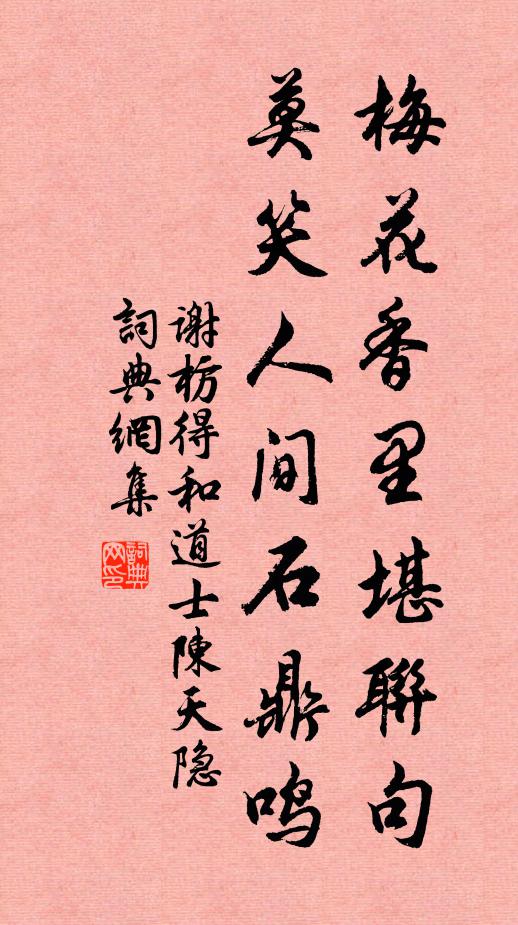 梅花香里堪聯句
莫笑人间石鼎鸣
谢枋得和道士陳天隐
詞典網集
詞典网印